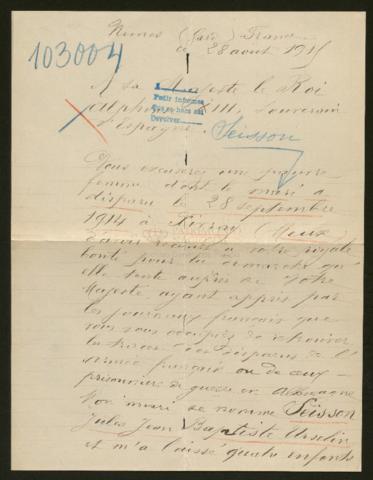 Nimes (Gard) France
ce 28 aout 1915
103004
A sa Majesté le Roi
Alphonse XIII, Souverain
d'Espagne.
Pedir informes
Devolver
Seisson
Vous excuserez une pauvre
femme dont le mari a
disparu le 28 septembre
1914 à (Meuse)
d'avoir recours à votre royale
bonté pour la démarche qu'
elle tente auprès de Votre
Majesté, ayant appris par
les journaux français que
vous vous occupez de retrouver
les traces des disparus de l'
armée française ou de ceux
prisonniers de guerre en Allemagne
Mon mari se nomme Seisson
Jules Jean Baptiste Ursulin
et m'a laissé quatre enfants